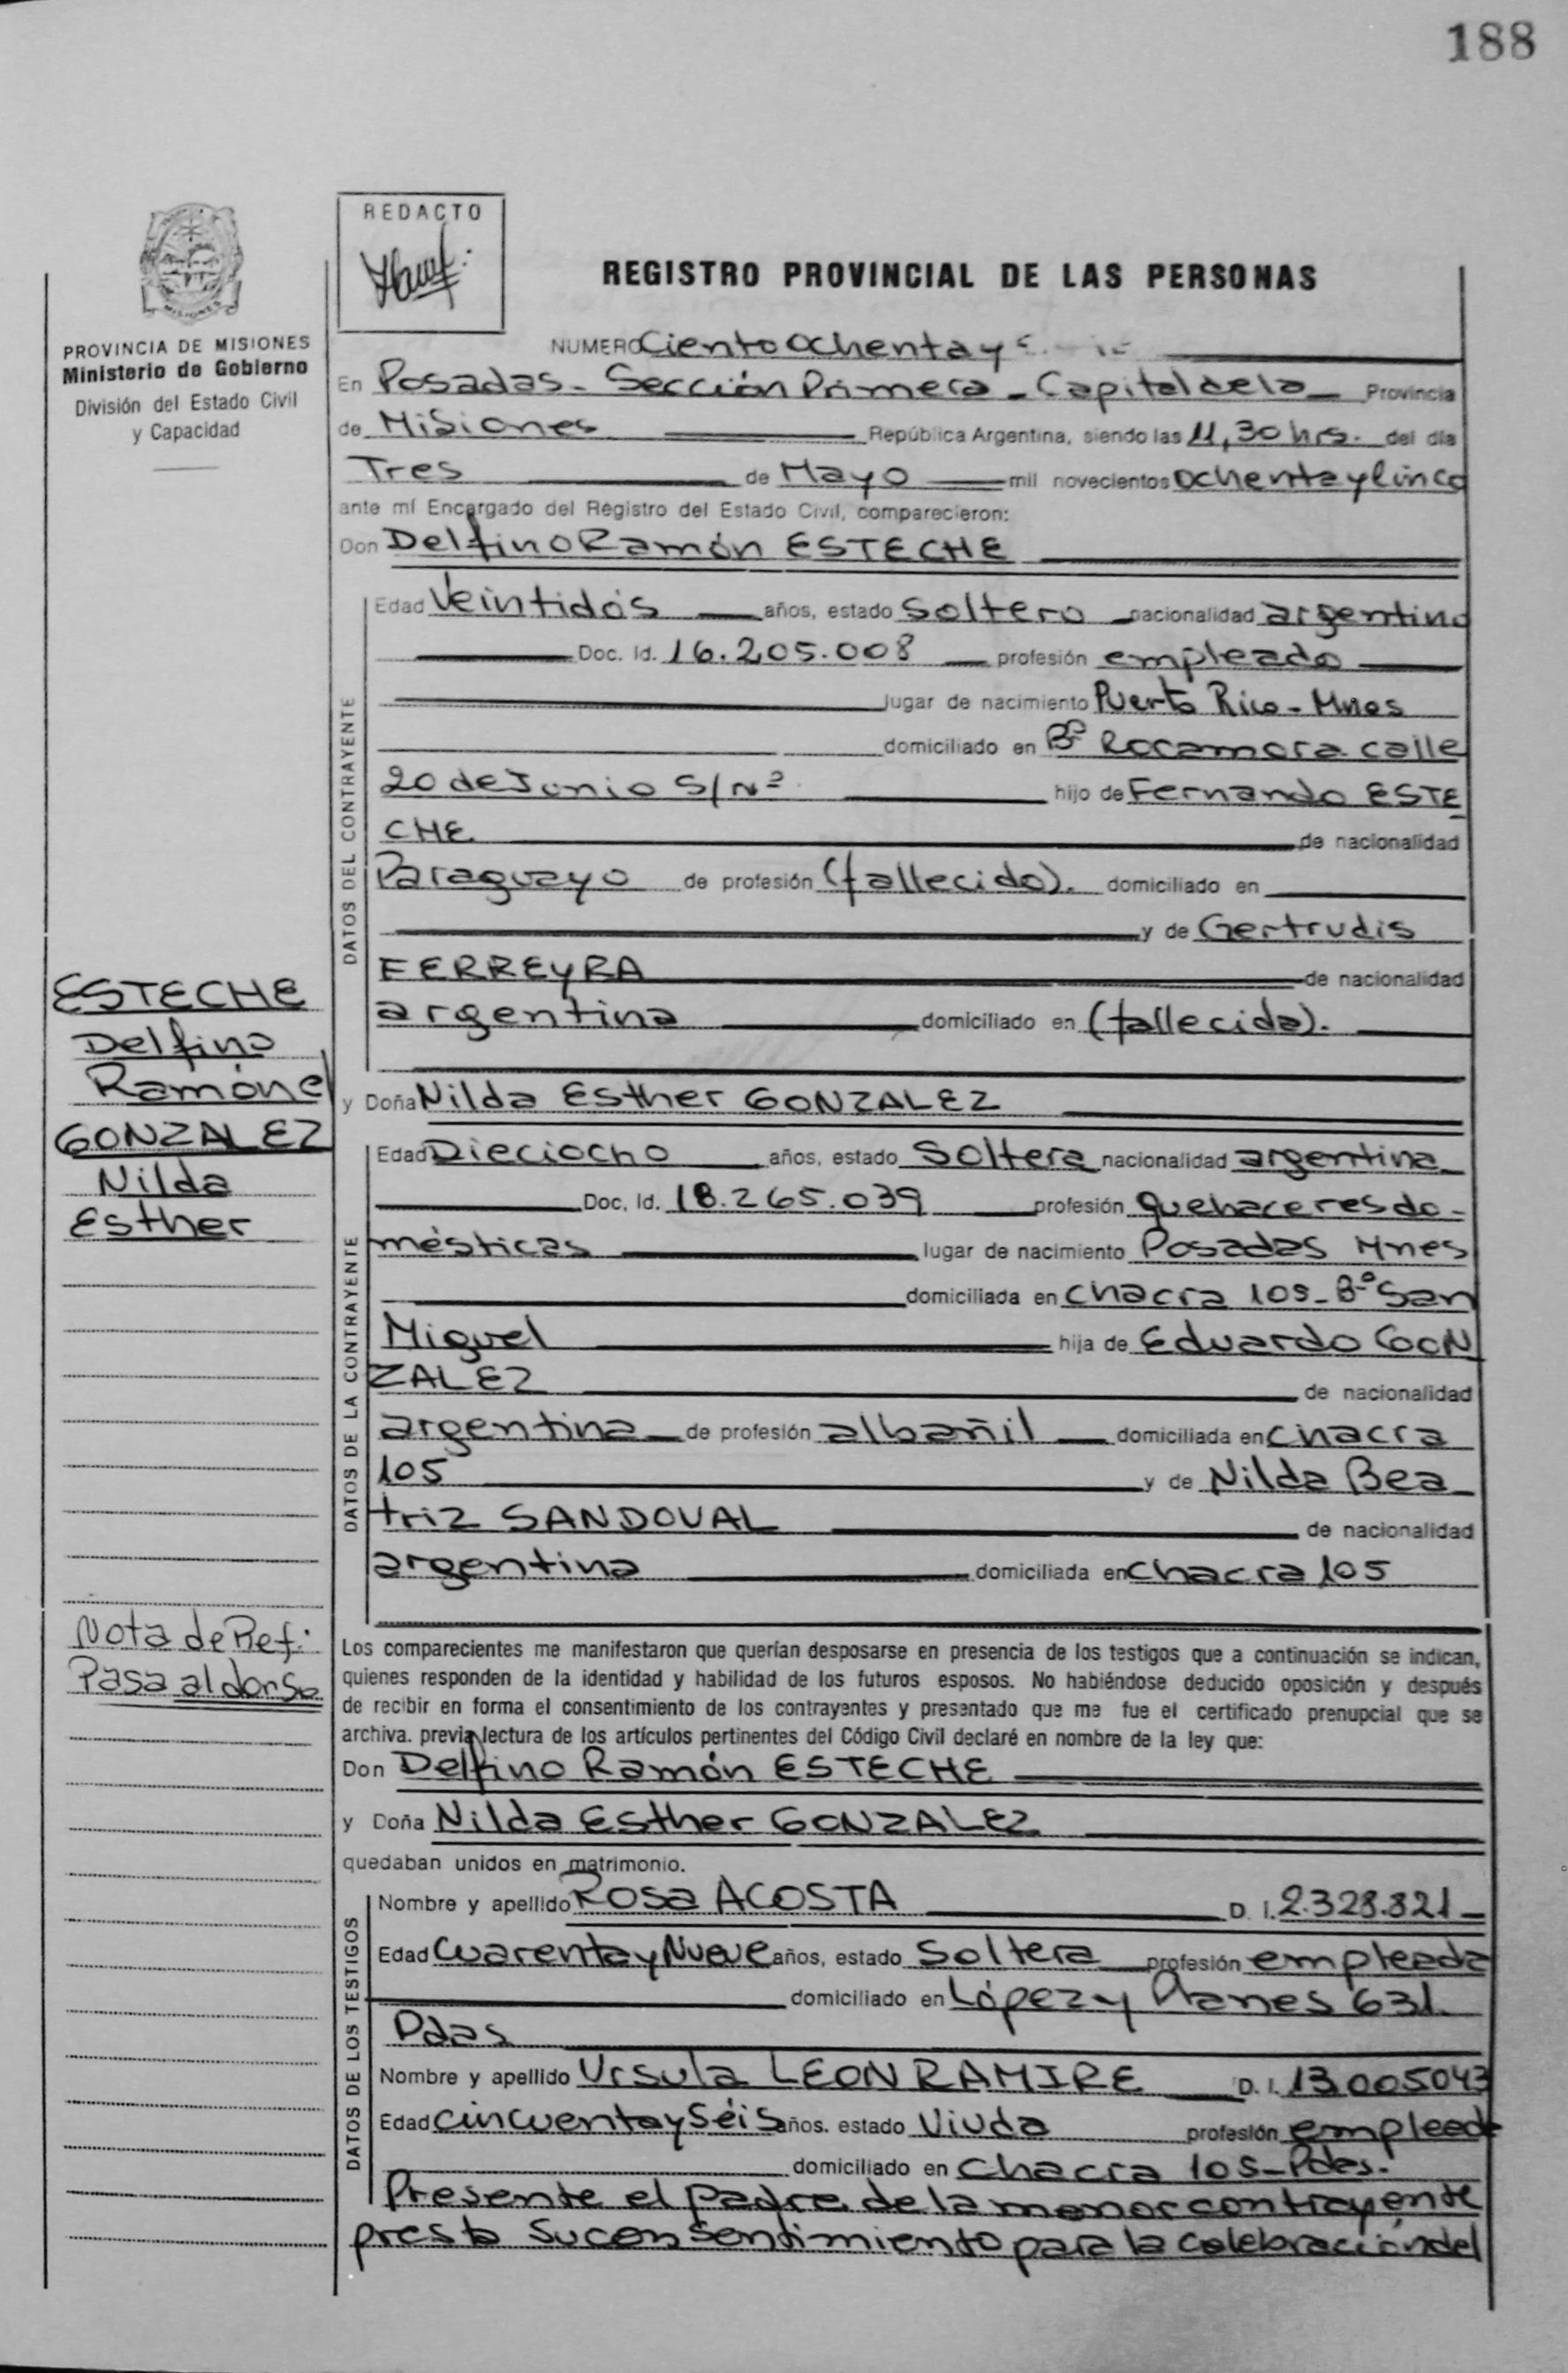 188
REDACTO
REGISTRO PROVINCIAL DE LAS PERSONAS
MISIONES
PROVINCIA DE MISIONES
Ministerio de Gobierno
División del Estado Civil
y Capacidad
NUMERO Ciento Ochenta y
En Posadas - Sección Primera - Capital de la Provincia
de Misiones República Argentina, siendo las 11,30 hrs. del día
Tres de Mayo mil novecientos Ochenta y Cinco
ante mí Encargado del Registro del Estado Civil, comparecieron:
Don Delfino Ramón ESTECHE
DATOS DEL CONTRAYENTE
Edad Veintidós años, estado Soltero nacionalidad argentino
Doc. Id. 16.205.008 profesión empleado
lugar de nacimiento Puerto Rico - Mnes
domiciliado en Bº Rocamora calle
20 de Junio S/Nº hijo de Fernando ESTE
CHE de nacionalidad
Paraguayo de profesión (fallecido). domiciliado en
y de Gertrudis
FERREYRA de nacionalidad
argentina domiciliado en (fallecida).
ESTECHE
Delfino
Ramón c/
GONZALEZ
Nilda
Esther
y Doña Nilda Esther GONZALEZ
DATOS DE LA CONTRAYENTE
Edad Dieciocho años, estado Soltera nacionalidad argentina
Doc. Id. 18.265.039 profesión quehaceres do-
mésticas lugar de nacimiento Posadas Mnes
domiciliada en chacra 105 - Bº San
Miguel hija de Eduardo GON
ZALEZ de nacionalidad
argentina de profesión albañil domiciliada en chacra
105 y de Nilda Bea
triz SANDOVAL de nacionalidad
argentina domiciliada en chacra 105
Nota de Ref:
Pasa al dorso
Los comparecientes me manifestaron que querían desposarse en presencia de los testigos que a continuación se indican,
quienes responden de la identidad y habilidad de los futuros esposos. No habiéndose deducido oposición y después
de recibir en forma el consentimiento de los contrayentes y presentado que me fue el certificado prenupcial que se
archiva. previa lectura de los artículos pertinentes del Código Civil declaré en nombre de la ley que:
Don Delfino Ramón ESTECHE
y Doña Nilda Esther GONZALEZ
quedaban unidos en matrimonio.
DATOS DE LOS TESTIGOS
Nombre y apellido Rosa ACOSTA D. I. 2.328.821
Edad Cuarenta y Nueve años, estado Soltera profesión empleada
domiciliado en López y Planes 631
Pdas
Nombre y apellido Ursula LEON RAMIRE D. I. 13.005043
Edad cincuenta y Séis años. estado Viuda profesión empleada
domiciliado en Chacra 105 - Pdas.
Presente el padre de la menor contrayente
presto su consentimiento para la celebración del